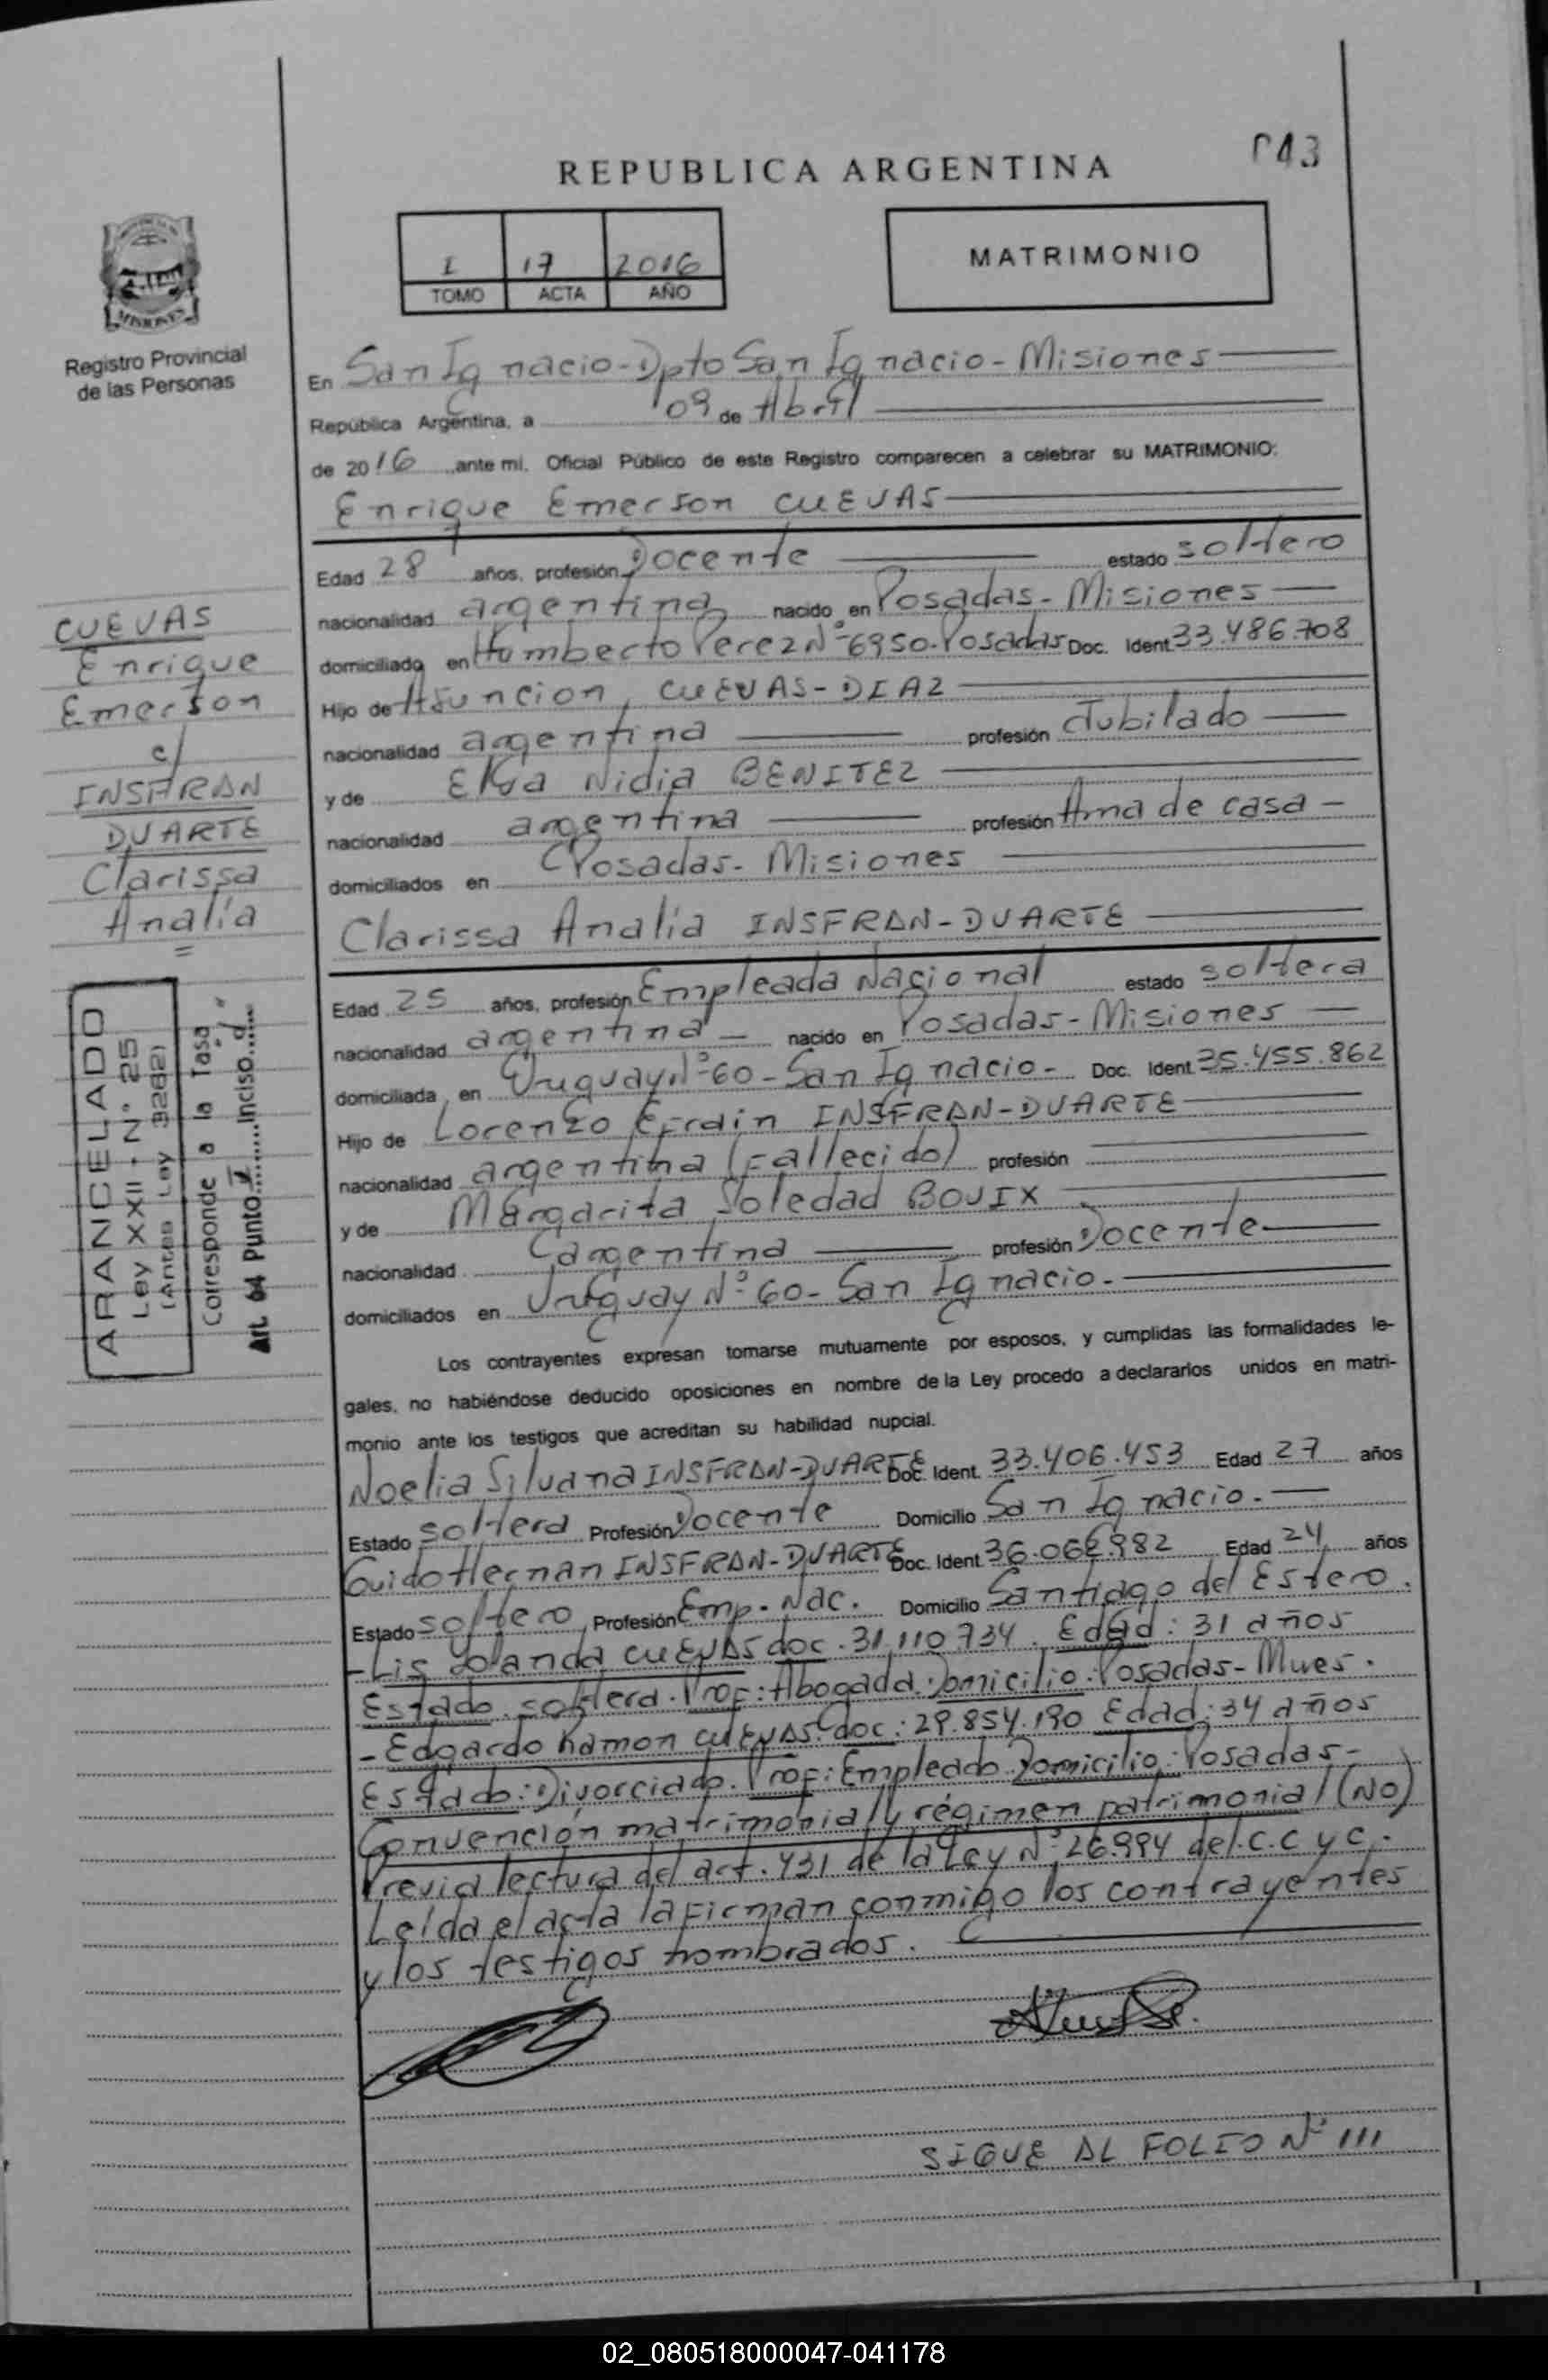 043
REPUBLICA ARGENTINA
I 17 2016
TOMO ACTA AÑO
MATRIMONIO
MISIONES
Registro Provincial
de las Personas
En San Ignacio - Dpto San Ignacio - Misiones
República Argentina, a 09 de Abril
de 2016 ante mi, Oficial Público de este Registro comparecen a celebrar su MATRIMONIO:
Enrique Emerson CUEVAS
Edad 28 años, profesión Docente estado soltero
nacionalidad argentina nacido en Posadas - Misiones
domiciliado en Humberto Perez N° 6950. Posadas Doc. Ident. 33.486.708
Hijo de Asuncion, CUEVAS - DIAZ
nacionalidad argentina profesión Jubilado
y de Elsa Nidia BENITEZ
nacionalidad argentina profesión Ama de casa -
domiciliados en Posadas - Misiones
Clarissa Analía INSFRAN - DUARTE
Edad 25 años, profesión Empleada Nacional estado soltera
nacionalidad argentina - nacido en Posadas - Misiones
domiciliada en Uruguay N° 60 - San Ignacio - Doc. Ident. 35.455.862
Hijo de Lorenzo Efrain INSFRAN - DUARTE
nacionalidad argentina (Fallecido) profesión
y de Margarita Soledad BOUIX
nacionalidad argentina profesión Docente
domiciliados en Uruguay N° 60 - San Ignacio.
Los contrayentes expresan tomarse mutuamente por esposos, y cumplidas las formalidades le-
gales, no habiéndose deducido oposiciones en nombre de la Ley procedo a declararlos unidos en matri-
monio ante los testigos que acreditan su habilidad nupcial.
Noelia Silvana INSFRAN - DUARTE Doc. Ident. 33.406.453 Edad 27 años
Estado soltera Profesión Docente Domicilio San Ignacio.
Guido Hernan INSFRAN - DUARTE Doc. Ident. Edad 24 años
Estado soltero Profesión Emp. Nac. Domicilio Santiago del Estero.
- Lis Yolanda CUEVAS doc. 31.110.734. Edad: 31 años
Estado soltera. Prof: Abogada. Domicilio: Posadas - Mnes.
- Edgardo Ramon CUEVAS. doc: 29.854.190 Edad: 34 años
Estado: Divorciado. Prof: Empleado Domicilio: Posadas -
Convención matrimonial y régimen patrimonial (NO)
Previa lectura del art. 431 de la Ley N° 26.994 del C.C y C.
Leída el acta la firman conmigo los contrayentes
y los testigos nombrados.
SIGUE AL FOLIO N° 111
CUEVAS
Enrique
Emerson
c/
INSFRAN
DUARTE
Clarissa
Analía
=
ARANCELADO
Ley XXII - N° 25
(Antes Ley 3262)
Corresponde a la Tasa
Art. 64 Punto I Inciso d
02_080518000047-041178